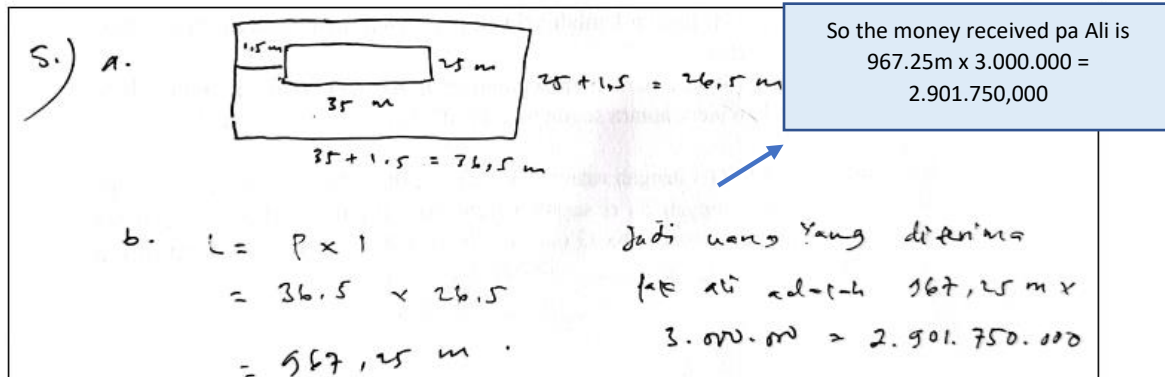 So the money received pa Ali is
967.25m x 3.000.000 =
2.901.750,000
5.) a.
1.5 m
25 m
35 m
25 + 1,5 = 26,5 m
35 + 1.5 = 36,5 m
b. L = P x l
= 36.5 x 26.5
= 967,25 m .
Jadi uang Yang diterima
pak ali adalah 967,25 m x
3.000.000 = 2.901.750.000